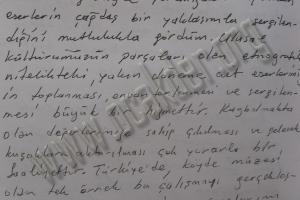 eserlerin çağdaş bir yaklaşımla sergilen-
diğini mutlulukla gördüm. Ulusal
kültürümüzün parçaları olan etnografik
nitelikteki, yakın döneme ait eserlerin
in toplanması, envanterlenmesi ve sergilen-
mesi büyük bir hizmettir. Kaybolmakta
olan değerlerimize sahip çıkılması ve gelecek
kuşaklara aktarılması çok yararlı bir
faaliyettir. Türkiye'de, köyde müzesi
olan tek örnek bu çalışmayı gerçekleş-